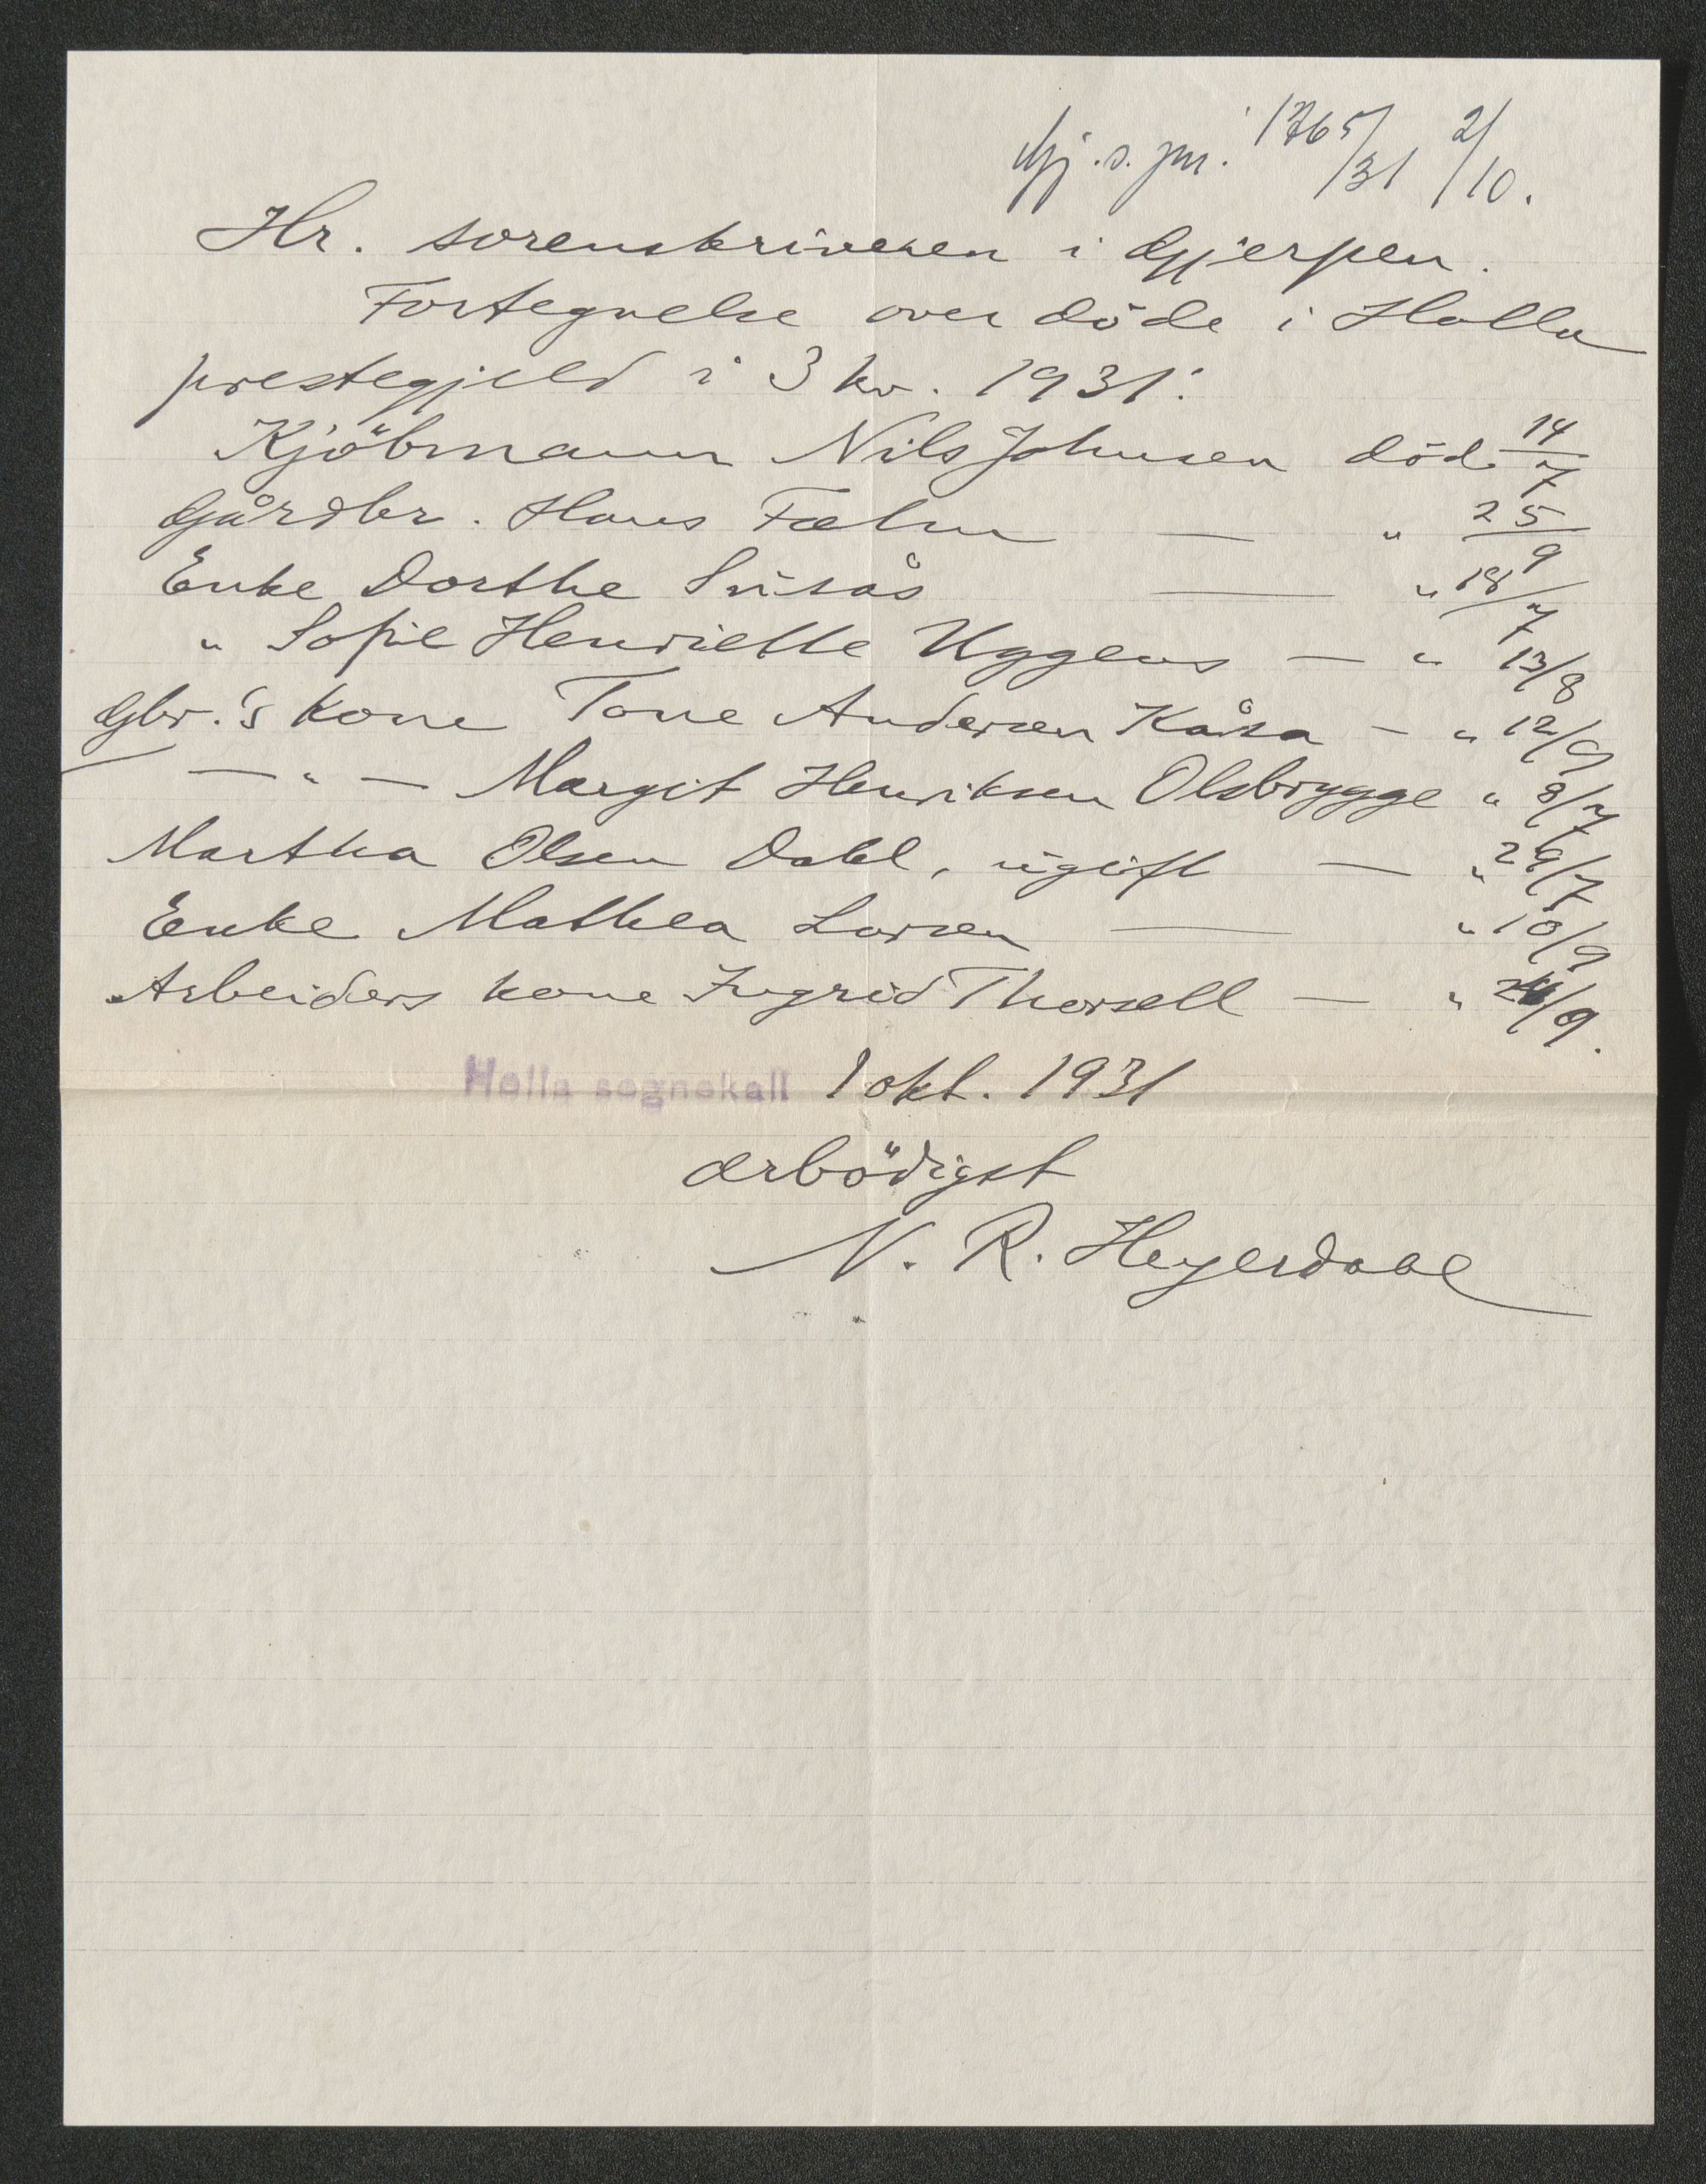 Gj. s. jnr. 1765/31 2/10.
Hr. sorenskriveren i Gjerpen.
Fortegnelse over døde i Holla
prestegjeld i 3 kv. 1931:
Kjöbmann Nils Johnsen död 14/7
Gårdbr. Hans Fæhn — " 25/9
Enke Dorthe — " 18/7
" Sofie Henriette Uggens — " 13/8
Gbr.'s kone Tone Andersen Kåsa — " 12/9
— " — Margit Henriksen Olsbrygge " 8/7
Martha Olsen Dahl, ugift — " 29/7
Enke Mathea Larsen — " 10/9
Arbeiders kone Ingrid Thorsell — " 24/9.
Holla sognekall 1 okt. 1931
ærbödigst
N. R. Heyerdahl